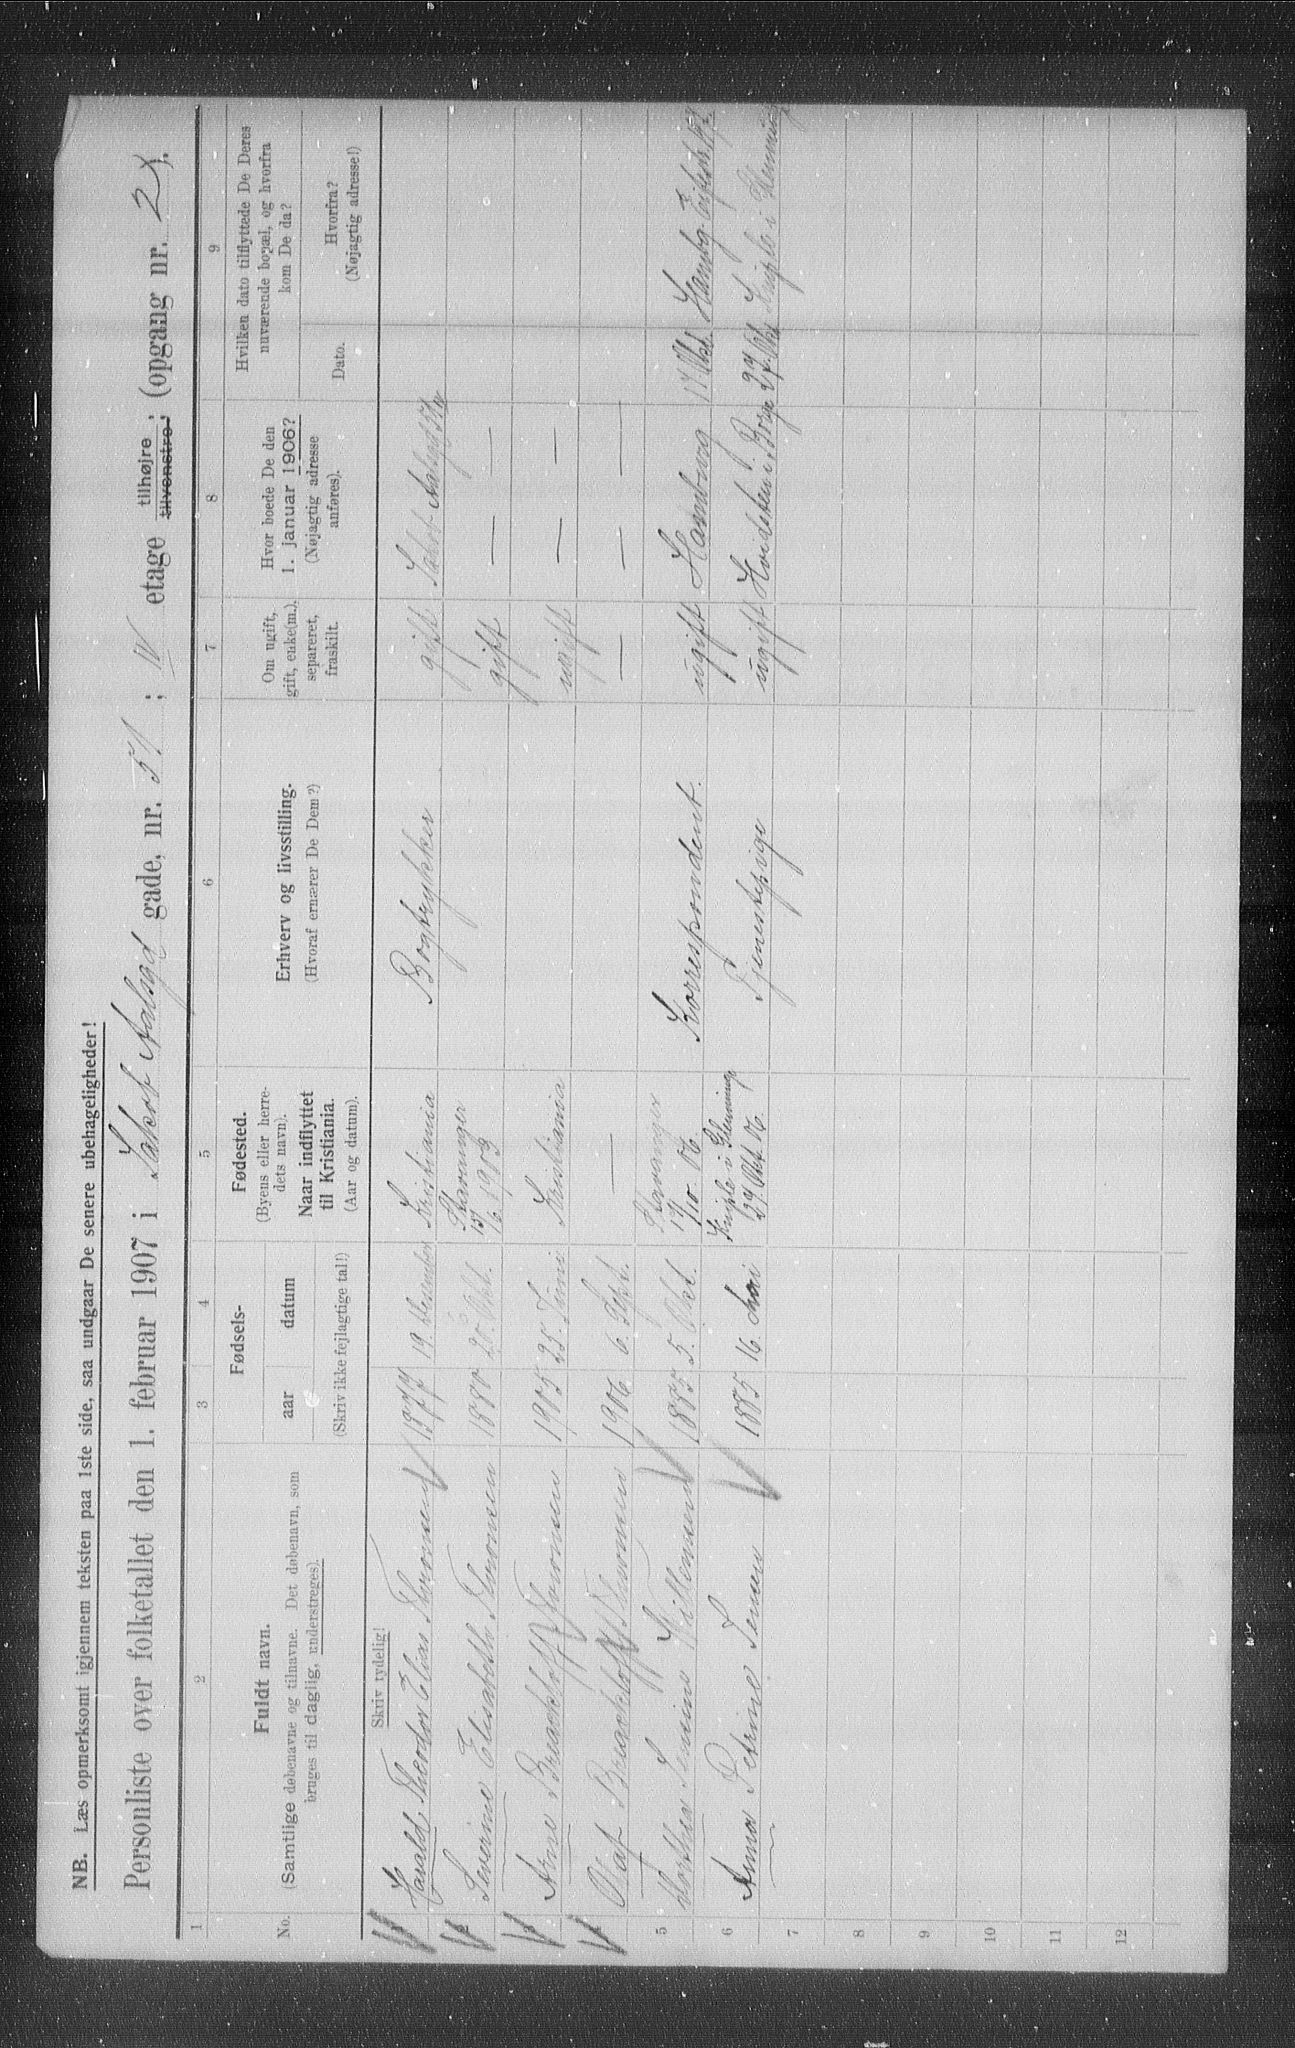 NB. Læs opmerksomt igjennem teksten paa 1ste side, saa undgaar De senere ubehageligheder!
Personliste over folketallet den 1. februar 1907 i Jakob Aalsgd gade, nr. 51; IV etage tilhøjre; tilvenstre; (opgang nr. 2).
1 2 3 4 5 6 7 8 9
No.
Fuldt navn.
(Samtlige døbenavne og tilnavne. Det døbenavn, som
bruges til daglig, understreges).
Fødsels-
aar datum
(Skriv ikke fejlagtige tal!)
Fødested.
(Byens eller herre-
dets navn).
Naar indflyttet
til Kristiania.
(Aar og datum).
Erhverv og livsstilling.
(Hvoraf ernærer De Dem?)
Om ugift,
gift, enke(m.),
separeret,
fraskilt.
Hvor boede De den
1. januar 1906?
(Nøjagtig adresse
anføres).
Hvilken dato tilflyttede De Deres
nuværende bopæl, og hvorfra
kom De da?
Dato.
Hvorfra?
(Nøjagtig adresse!)
Skriv tydelig!
Harald Theodor Elias Thronsen 1877 19. December Kristiania Bogtrykker gift
Severine Elisabeth Thronsen 1880 20. Okt. Stavanger 15/6 1903 gift — —
3 Arne Brackloff Thronsen 1905 25. Juni Kristiania ugift — —
Olaf Brackloff Thronsen 1906 6. Sept. — — — —
5 Dorthea 1885 5. Okt. Stavanger 17/10 06. Korrespondent. ugift Hamburg 17 Okt. Hambg
6 Anna Petrine Jensen 1885 16. Mai 27 Okt. 06. Tjenestepige ugift 27 Okt.
7
8
9
10
11
12